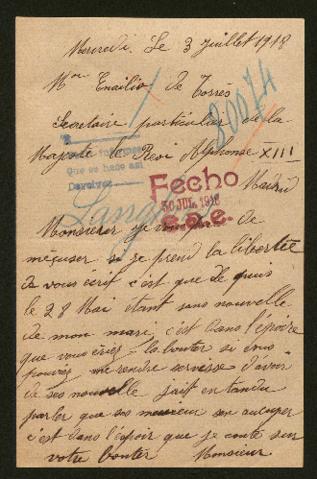 Mercredi. Le 3 Juillet 1918
Mon Emilio de Torrès
80074
Secretaire particulier de la
Majesté le Roi Alphonse XIII
que se hace así
Devolver
Madrid
Fecho
30 JUL. 1918
Monsieur je de
méçuser si je prend la libertée
de vous écrit c'est que de puis
le 28 Mai étant sans nouvelle
de mon mari, c'est dans l'époire
que vous la bonter si vous
pouvez me rendre servisse d'avoir
de ses nouvelle jait entandu
parler que ses messieur son
c'est dans l'éspoir que je conte sur
votre bonter Monsieur